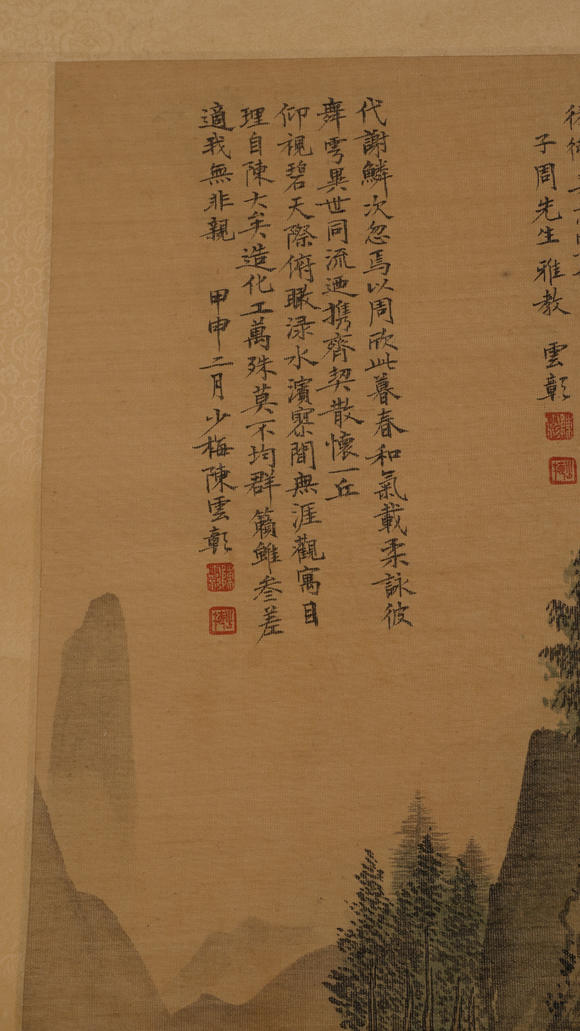 子周先生雅教 雲彰
代謝鱗次忽焉以周欣此暮春和氣載柔詠彼
舞雩異世同流迺携齊契散懷一丘
仰視碧天際俯瞰渌水濱寥閒無涯觀寓目
理自陳大矣造化工萬殊莫不均群籟雖叁差
適我無非親 甲申二月少梅陳雲彰